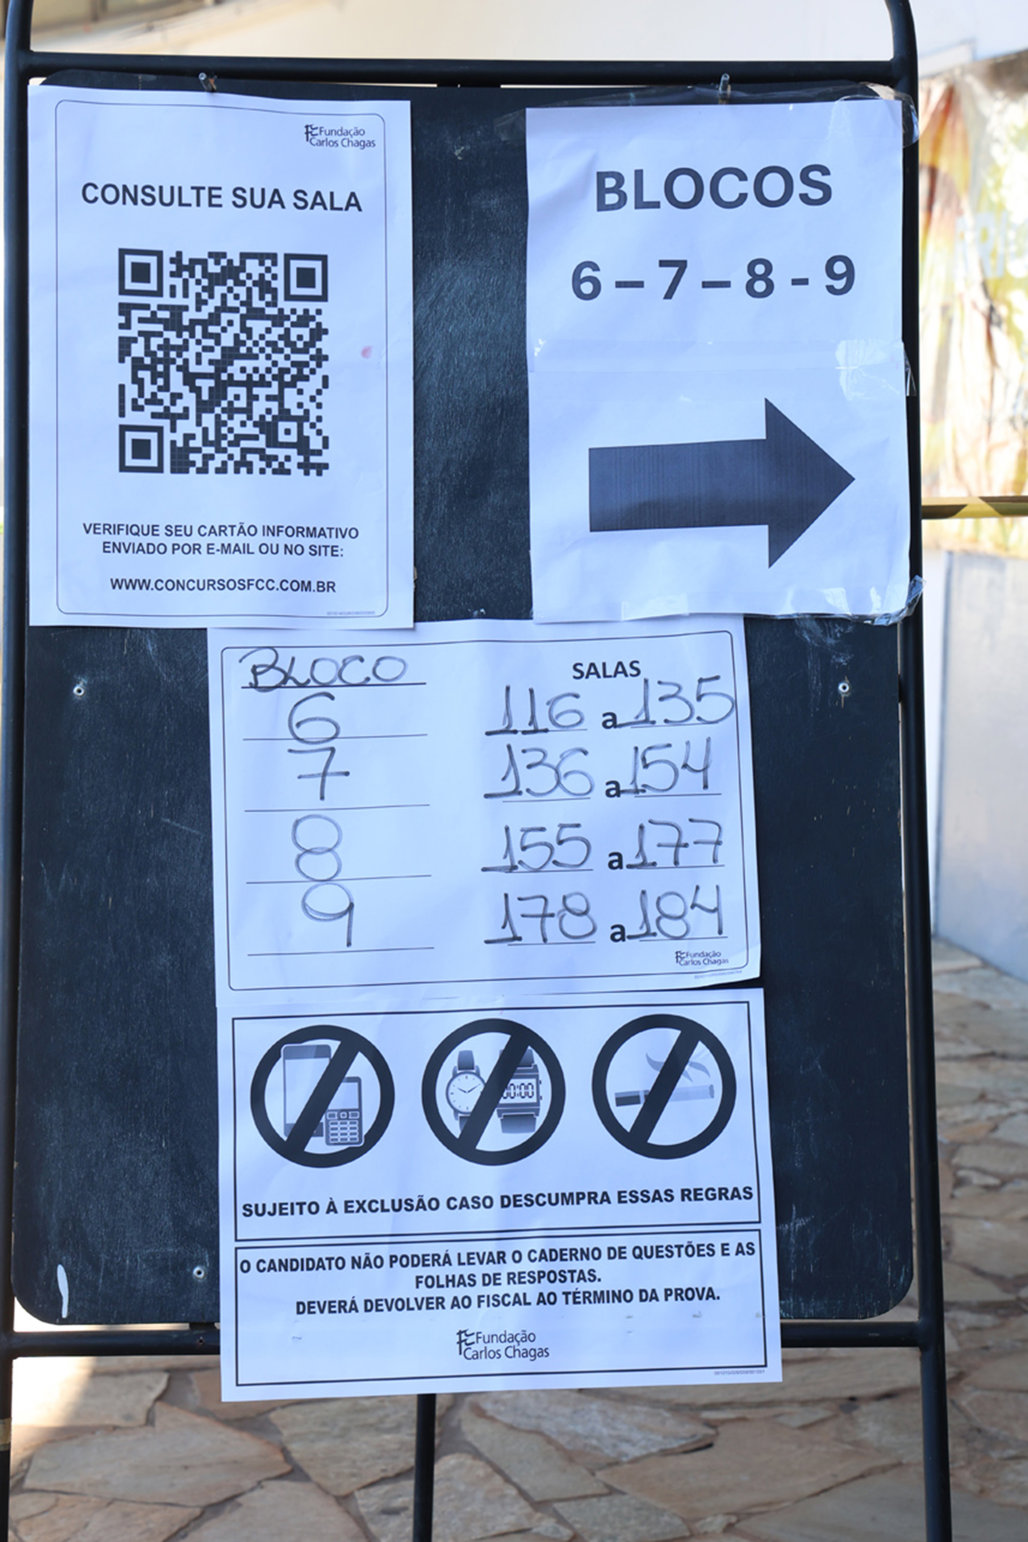 Fundação
Carlos Chagas
CONSULTE SUA SALA
VERIFIQUE SEU CARTÃO INFORMATIVO
ENVIADO POR E-MAIL OU NO SITE:
WWW.CONCURSOSFCC.COM.BR
BLOCOS
6 – 7 – 8 - 9
BLOCO SALAS
6 116 a 135
7 136 a 154
8 155 a 177
9 178 a 184
Fundação
Carlos Chagas
00:00
SUJEITO À EXCLUSÃO CASO DESCUMPRA ESSAS REGRAS
O CANDIDATO NÃO PODERÁ LEVAR O CADERNO DE QUESTÕES E AS
FOLHAS DE RESPOSTAS.
DEVERÁ DEVOLVER AO FISCAL AO TÉRMINO DA PROVA.
Fundação
Carlos Chagas